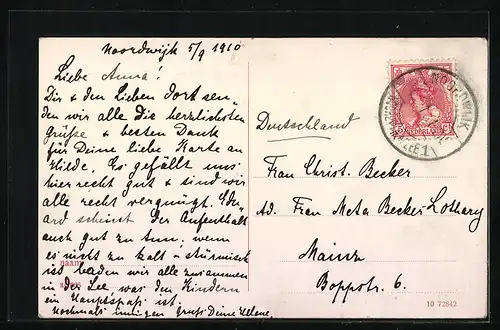 Noordwijk 5/9 1910
Liebe Anna!
Dir & den Lieben dort sen-
den wir alle die herzlichsten
Grüße & besten Dank
für Deine liebe Karte an
Hilde. Es gefällt uns
hier recht gut & sind wir
alle recht vergnügt. Edu-
ard scheint der Aufenthalt
auch gut zu tun, wenn
es nicht zu kalt & stürmisch
ist baden wir alle zusammen
in der See, was den Kindern
ein Hauptspaß ist.
nochmals innigen Gruß Deine Helene.
naam
NEDERLAND
NOORDWIJK
Deutschland
Frau Christ. Becker
Ad. Frau Meta Becker-Lothary
Mainz
Boppstr. 6.
10 72842